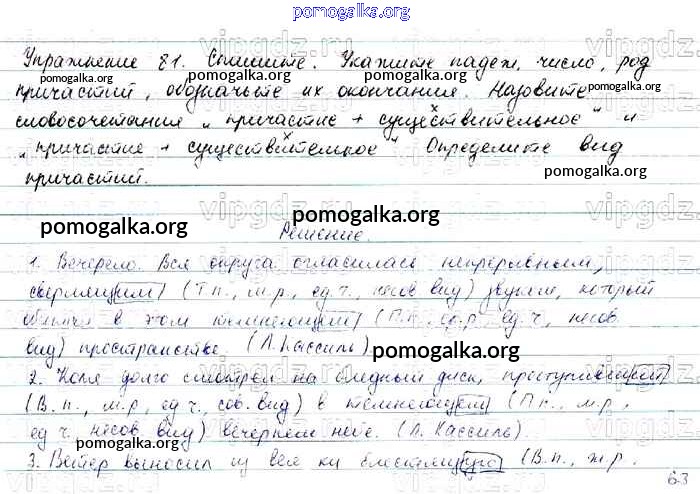 pomogalka.org
Упражнение 81. Спишите. Укажите падеж, число, род
pomogalka.org pomogalka.org
причастий, обозначьте их окончания. Назовите
словосочетания „причастие + существительное" и
„причастие + существительное" Определите вид
pomogalka.org
причастий.
pomogalka.org pomogalka.org
Решение.
1. Вечерело. Вся округа огласилась непрерывным,
сверлящим (Тп., м.р., ед.ч., несов вид) звуком, который
в этом темнеющем (П.п., ср.р., ед.ч., несов
вид) пространстве. (Л. Кассиль)
pomogalka.org
2. Коля долго смотрел на бледный диск, проступивший
(В.п., м.р., ед.ч., сов. вид) в темнеющем (П.п., м.р.,
ед.ч. несов. вид) вечернем небе. (Л. Кассиль).
pomogalka.org pomogalka.org
3. Ветер выносил из блестящую (В.п., ж.р.
63